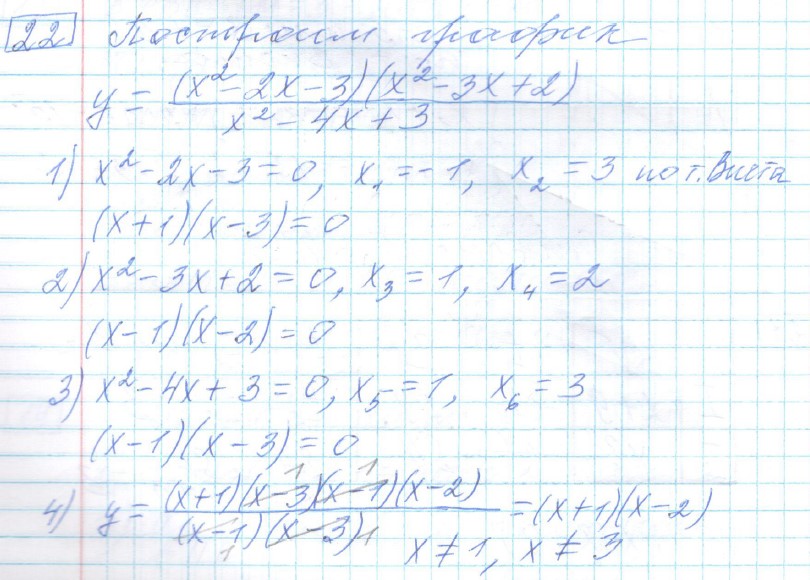 22 Построим график
y = (x² - 2x - 3)(x² - 3x + 2) / x² - 4x + 3
1) x² - 2x - 3 = 0, x₁ = -1, x₂ = 3 по т. Виета
(x+1)(x-3) = 0
2) x² - 3x + 2 = 0, x₃ = 1, x₄ = 2
(x-1)(x-2) = 0
3) x² - 4x + 3 = 0, x₅ = 1, x₆ = 3
(x-1)(x-3) = 0
4) y = (x+1)(x-3)¹(x-1)¹(x-2) / (x-1)₁(x-3)₁ = (x+1)(x-2)
x ≠ 1, x ≠ 3